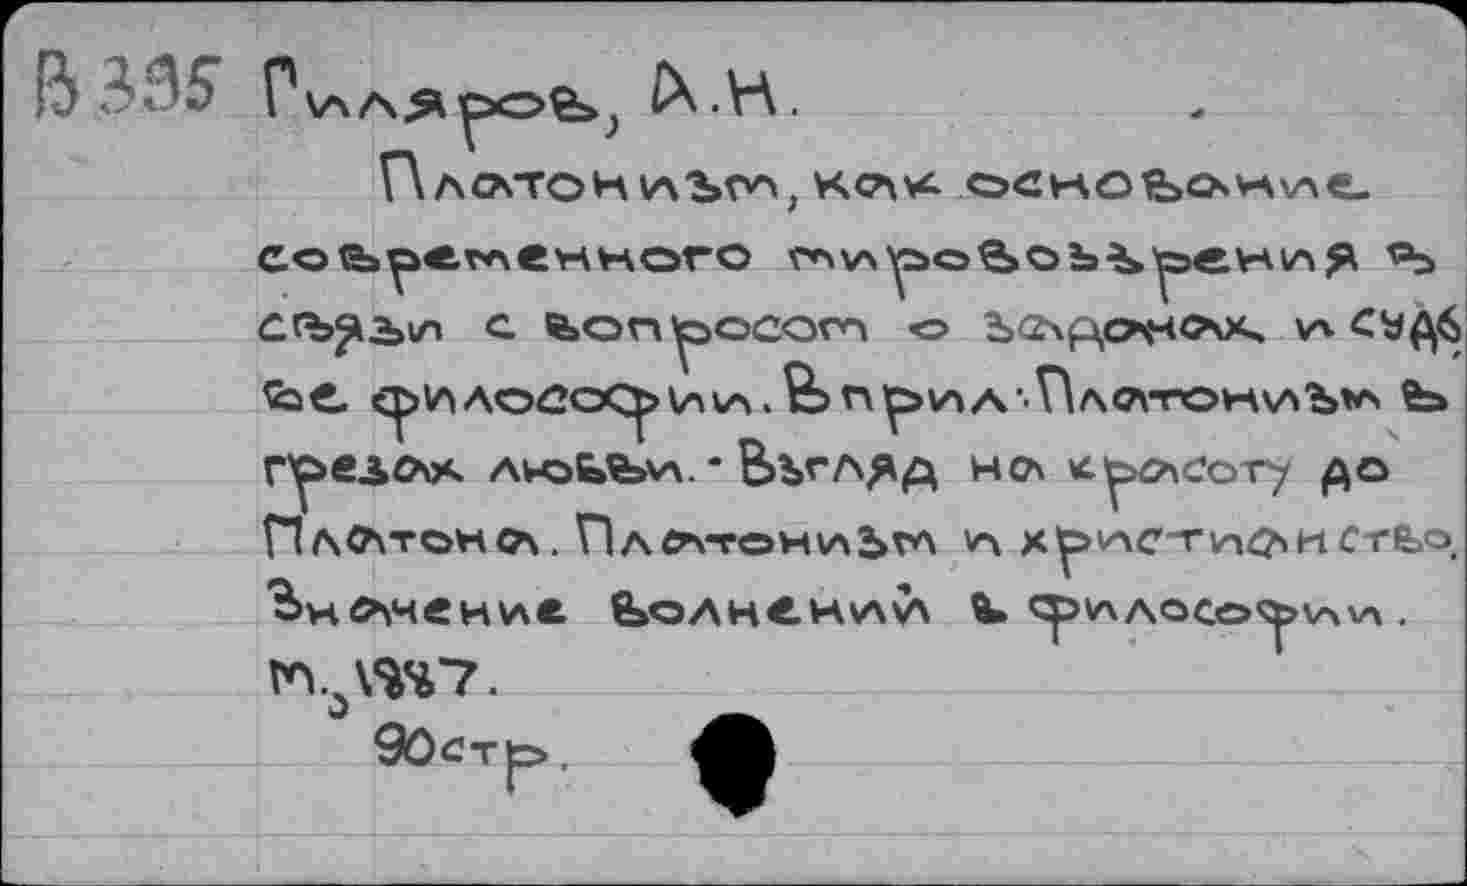 В395 Гиляров, А.Н.
Платонизм, как основание
современного мировоззрения в
связи с вопросом о задачах и судь
бе философии. В прил: Платонизм в
грезах любви. Взгляд на красоту до
Платона. Платонизм и христианство.
Значение волнений в философии.
М., 1887.
90стр.